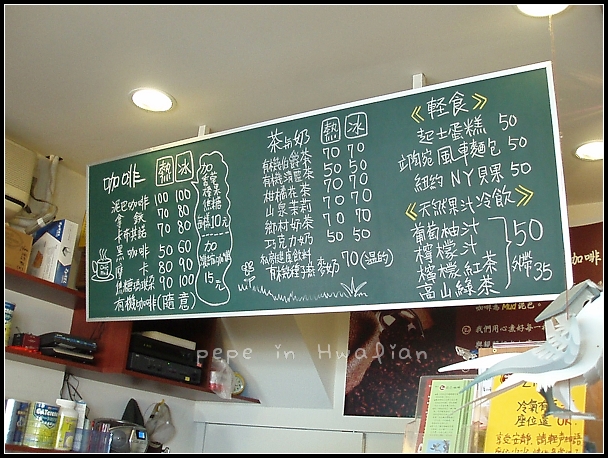 咖啡 熱 冰
泥巴咖啡 100 100
拿鐵 70 80
卡布其諾 70 80
黑咖啡 50 60
摩卡 80 90
焦糖瑪其朵 90 100
有機咖啡(隨意)
加
香草
榛果
焦糖
每樣10元
加
15元
茶与奶 熱 冰
有機伯爵茶 70 70
50 50
柑橘花茶 70 70
山泉茉莉 70 70
鄉村奶茶 70 70
巧克力奶 50 50
麥奶 70(溫的)
《輕食》
起士蛋糕 50
風車麵包 50
紐約NY貝果 50
《天然果汁冷飲》
葡萄柚汁
檸檬汁
檸檬紅茶
高山綠茶
50
外帶35
pepe in Hwalian
咖啡為 Mud 泥巴。
我們用心煮好每一
冷氣
座位這 OK!